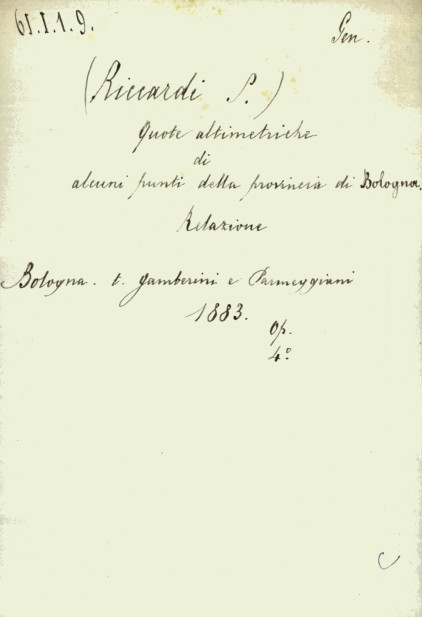 61.I.1.9.
Gen.
(Riccardi P.)
Quote altimetriche
di
alcuni punti della provincia di Bologna.
Relazione
Bologna. t. Gamberini e Parmeggiani
1883.
op.
4º